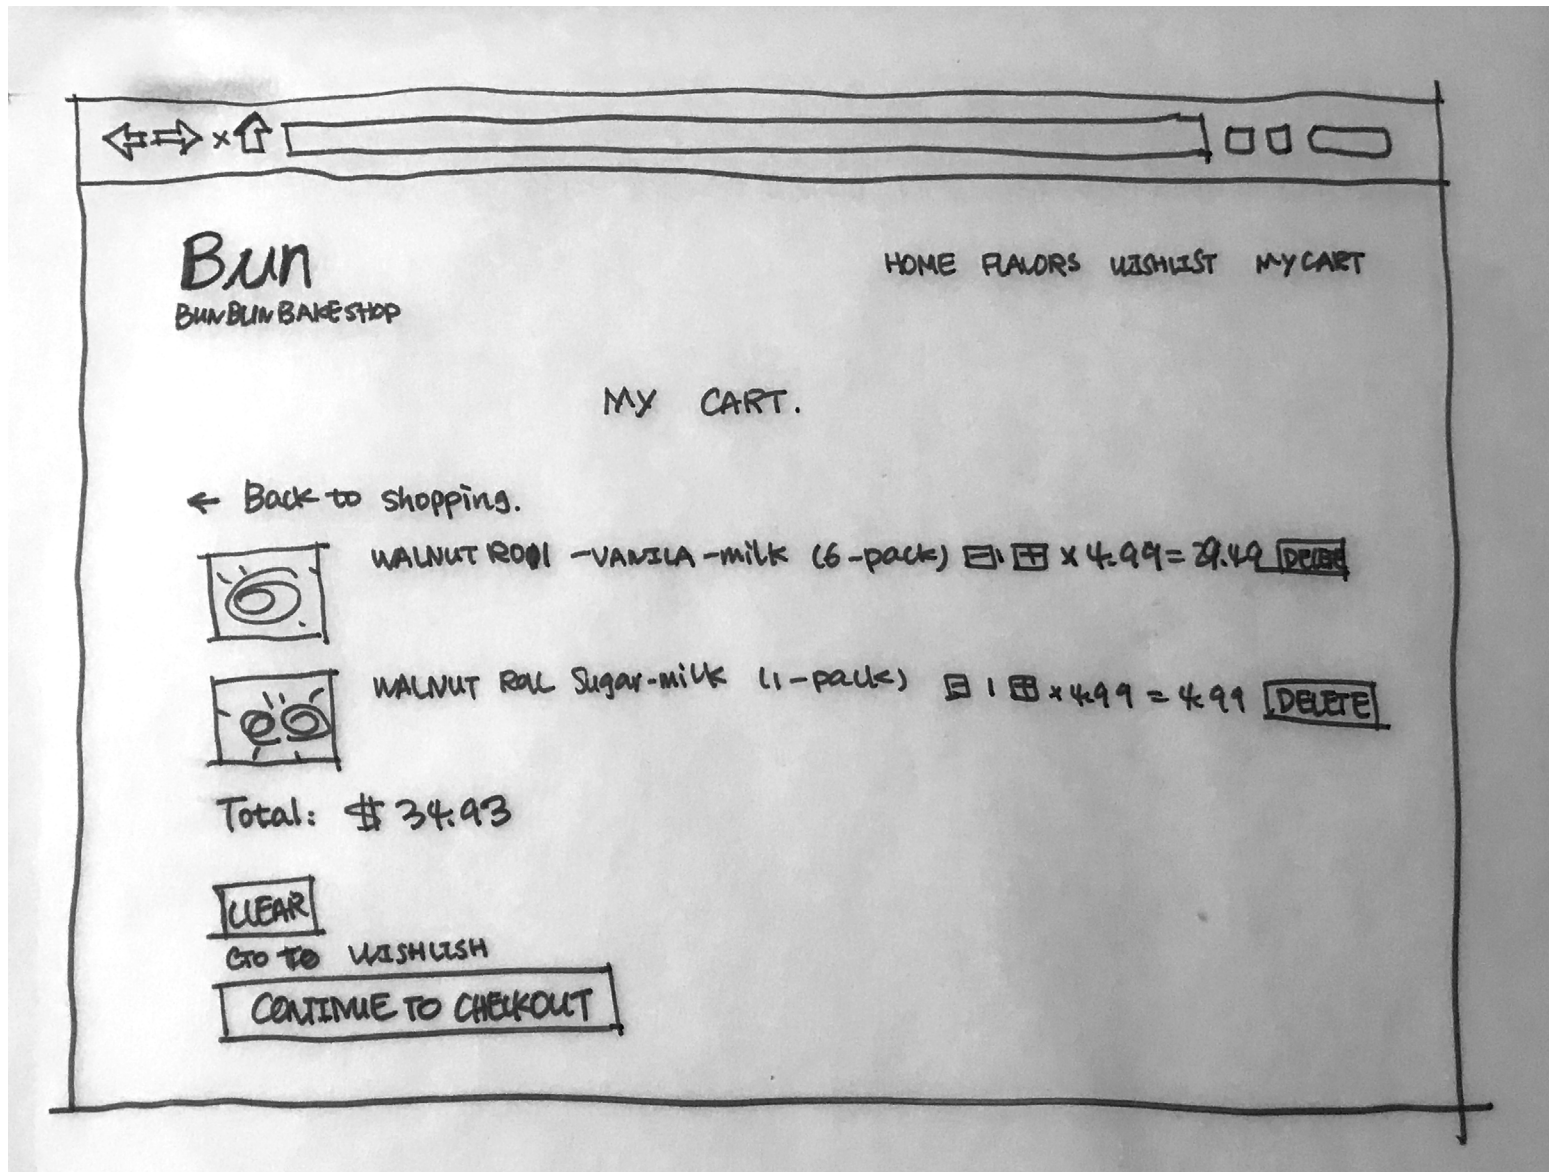 Bun
BUNBUNBAKESHOP
HOME FLAVORS WISHLIST MY CART
MY CART.
← Back to shopping.
WALNUT ROOl -VANILA-milk (6-pack) ⊟ 1 ⊞ x 4.99 = 29.49 DELETE
WALNUT ROLL Sugar-milk (1-pack) ⊟ 1 ⊞ x 4.99 = 4.99 DELETE
Total: $ 34.93
CLEAR
GO TO WISHLISH
CONTINUE TO CHECKOUT